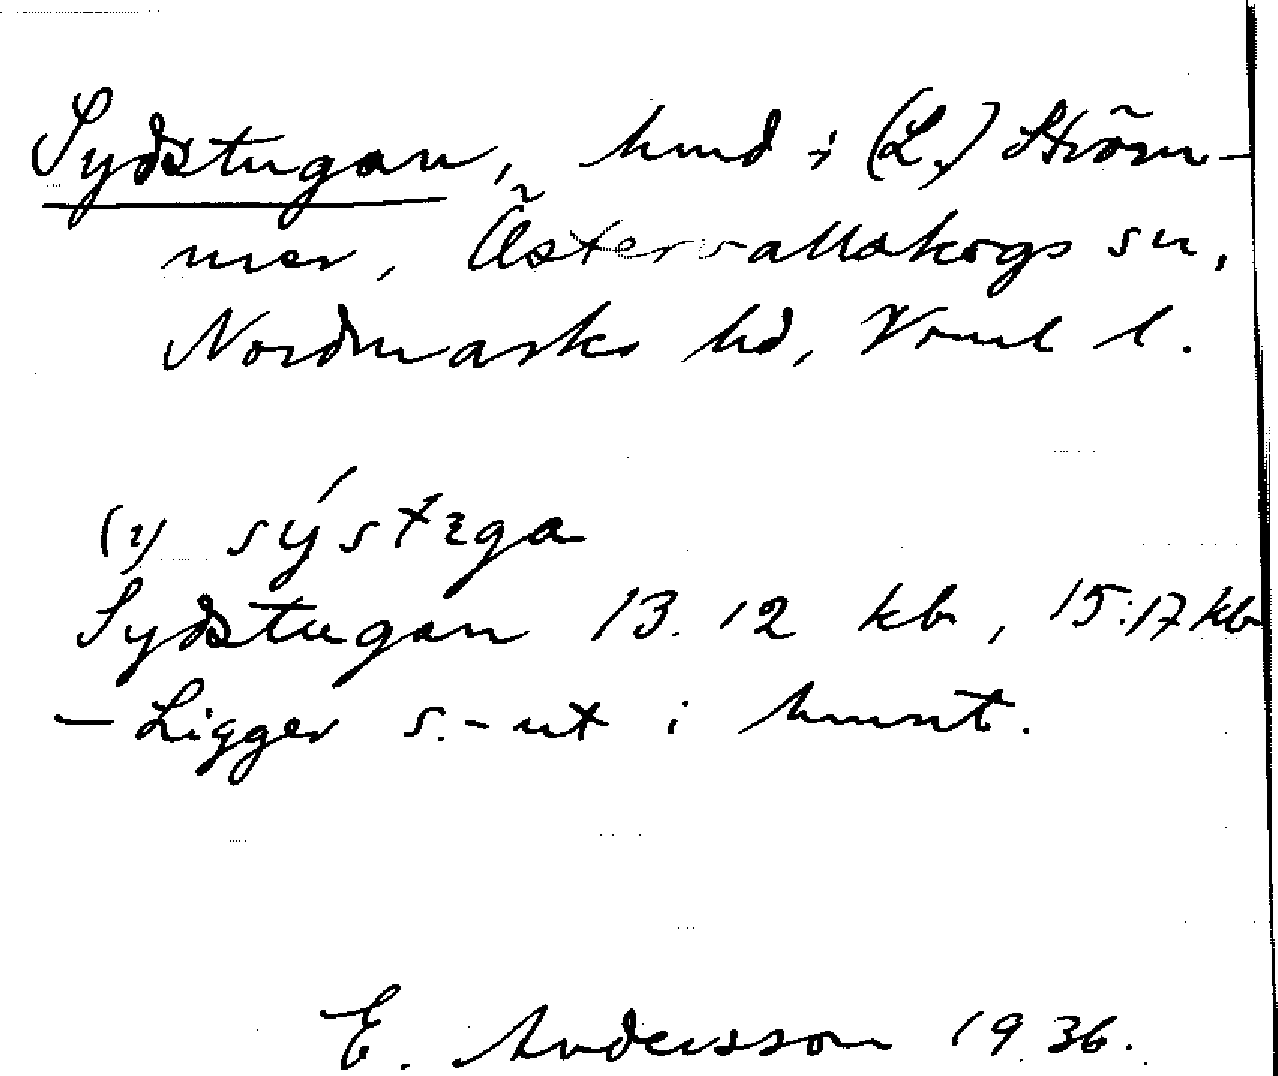 Sydstugan, hmd i (L.) Ström-
mer, Östervallskogs sn,
Nordmarks hd, Vrml l.
(i) sýstɛga
Sydstugan 13.12 kb, 15:17 kb
— Ligger s.-ut i hmnt.
E. Andersson 1936.